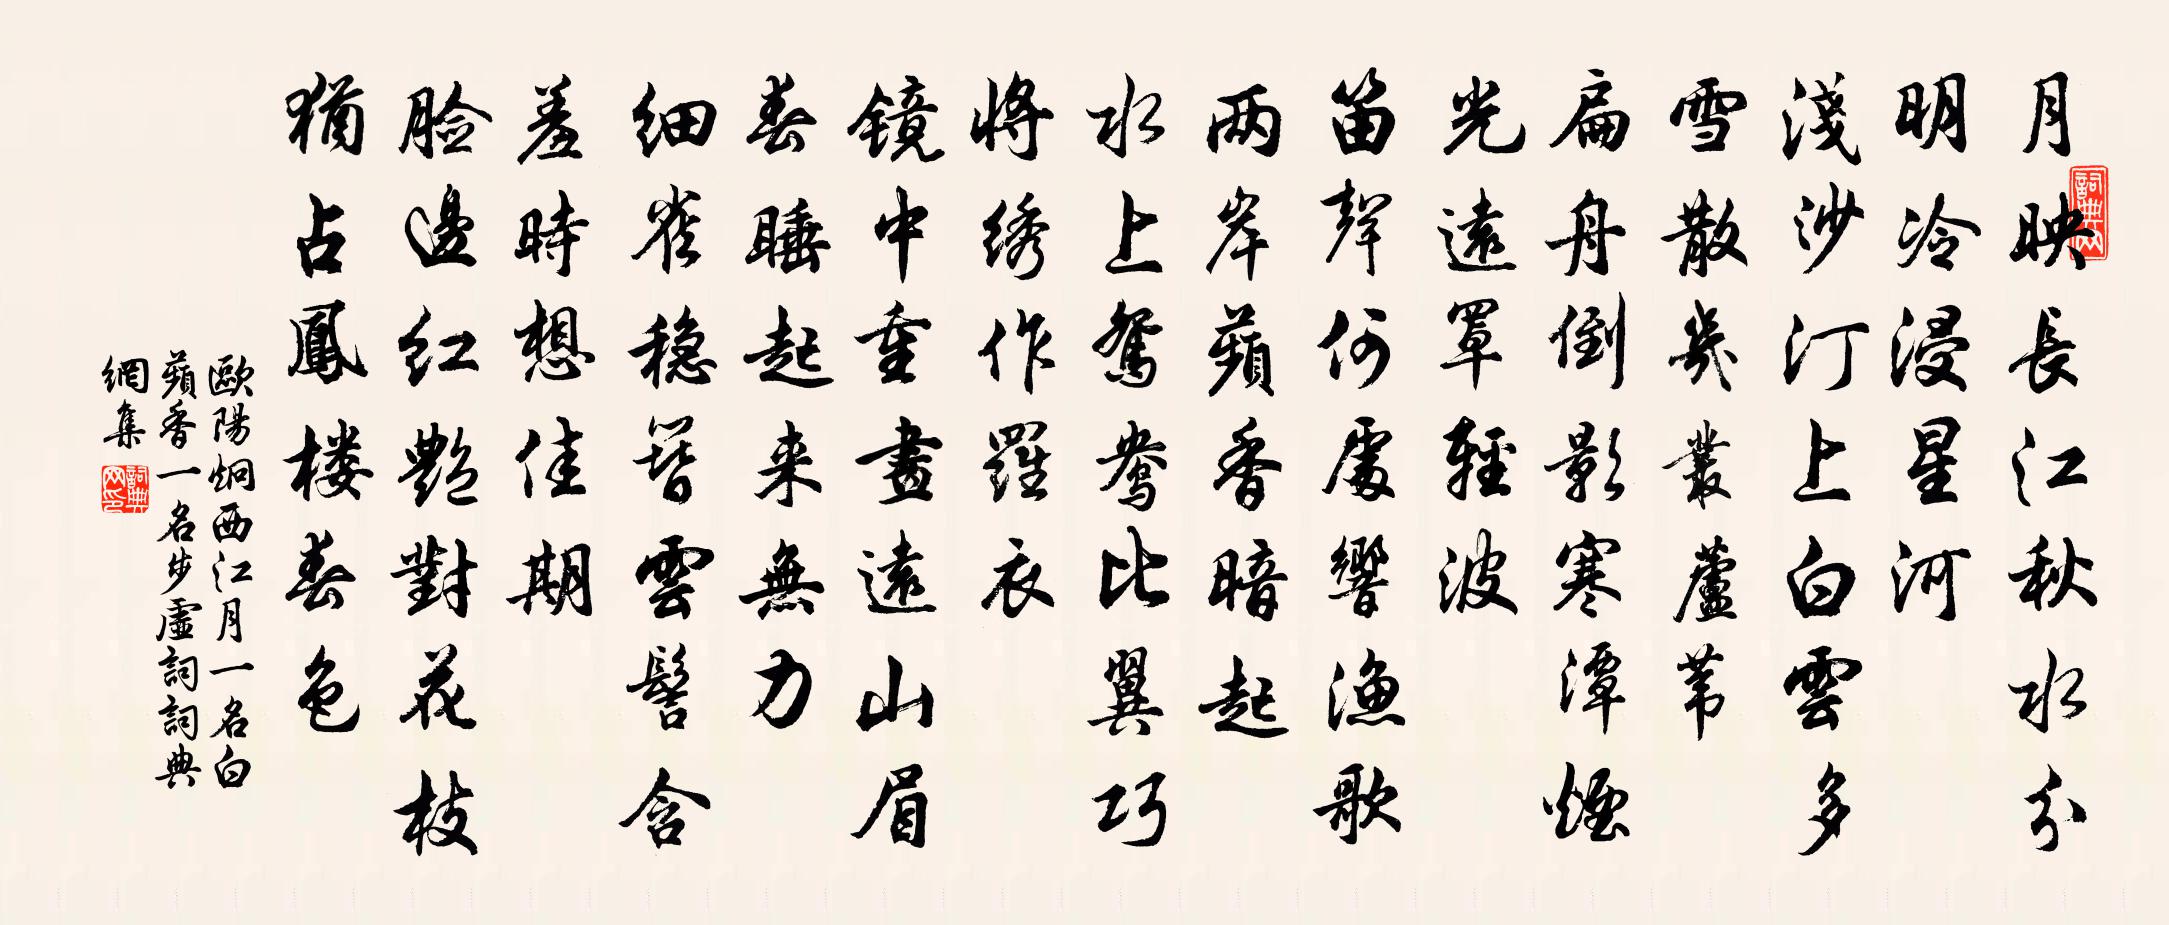 月映長江秋水分
明冷浸星河
淺沙汀上白雲多
雪散幾叢蘆葦
扁舟倒影寒潭煙
光遠罩輕波
笛聲何處響漁歌
两岸蘋香暗起
水上鴛鴦比翼巧
將绣作羅衣
镜中重畫遠山眉
春睡起来無力
细雀稳簪雲髻含
羞時想佳期
脸邊红艷對花枝
猶占鳳楼春色
歐陽炯西江月一名白
蘋香一名步虛詞詞典
網集
詞典网
詞典网印